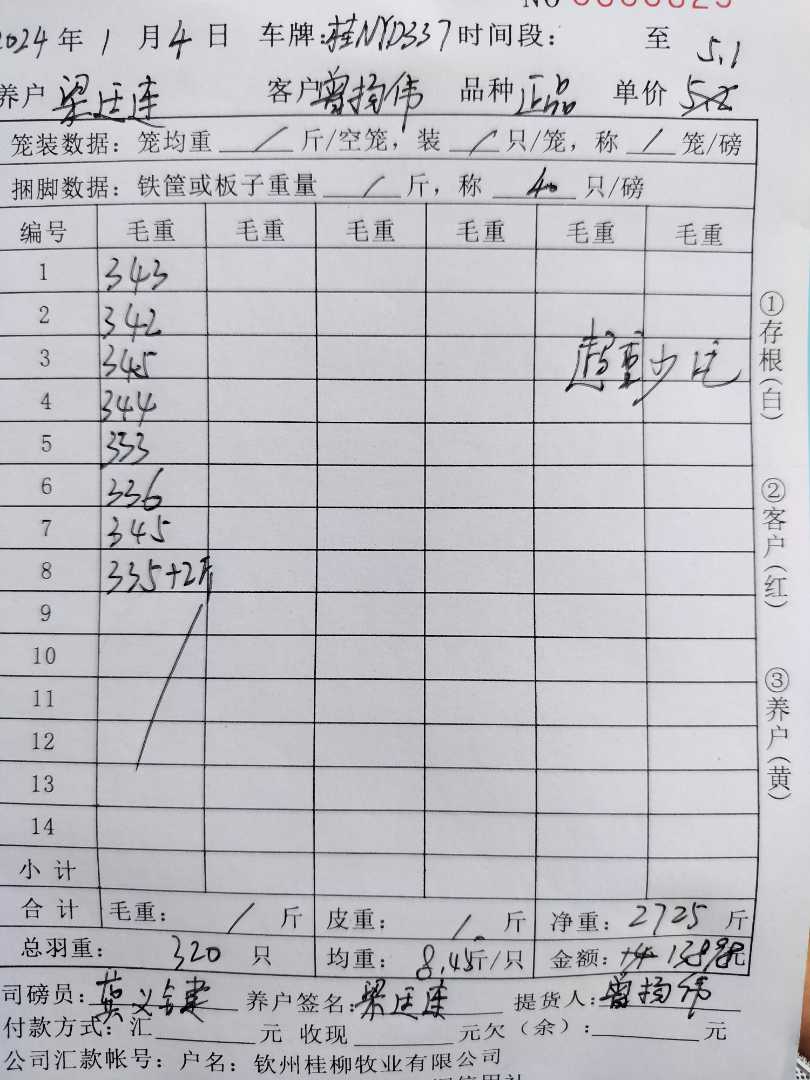 NO 0000825
2024年1月4日 车牌:桂NYD337 时间段: 至
5.1
养户 梁廷连 客户 曾扬伟 品种 正品 单价 5.2
笼装数据: 笼均重 / 斤/空笼, 装 / 只/笼, 称 / 笼/磅
捆脚数据: 铁筐或板子重量 / 斤, 称 40 只/磅
编号 毛重 毛重 毛重 毛重 毛重 毛重
1 343
2 342
3 345 超重少吃
4 344
5 333
6 336
7 345
8 335+2斤
9
10
11
12
13
14
小计
合计 毛重: / 斤 皮重: / 斤 净重: 2725 斤
总羽重: 320 只 均重: 8.45斤/只 金额: 13898元
司磅员: 养户签名: 梁廷连 提货人: 曾扬伟
付款方式: 汇 元 收现 元欠(余): 元
公司汇款帐号: 户名: 钦州桂柳牧业有限公司
①存根(白)
②客户(红)
③养户(黄)